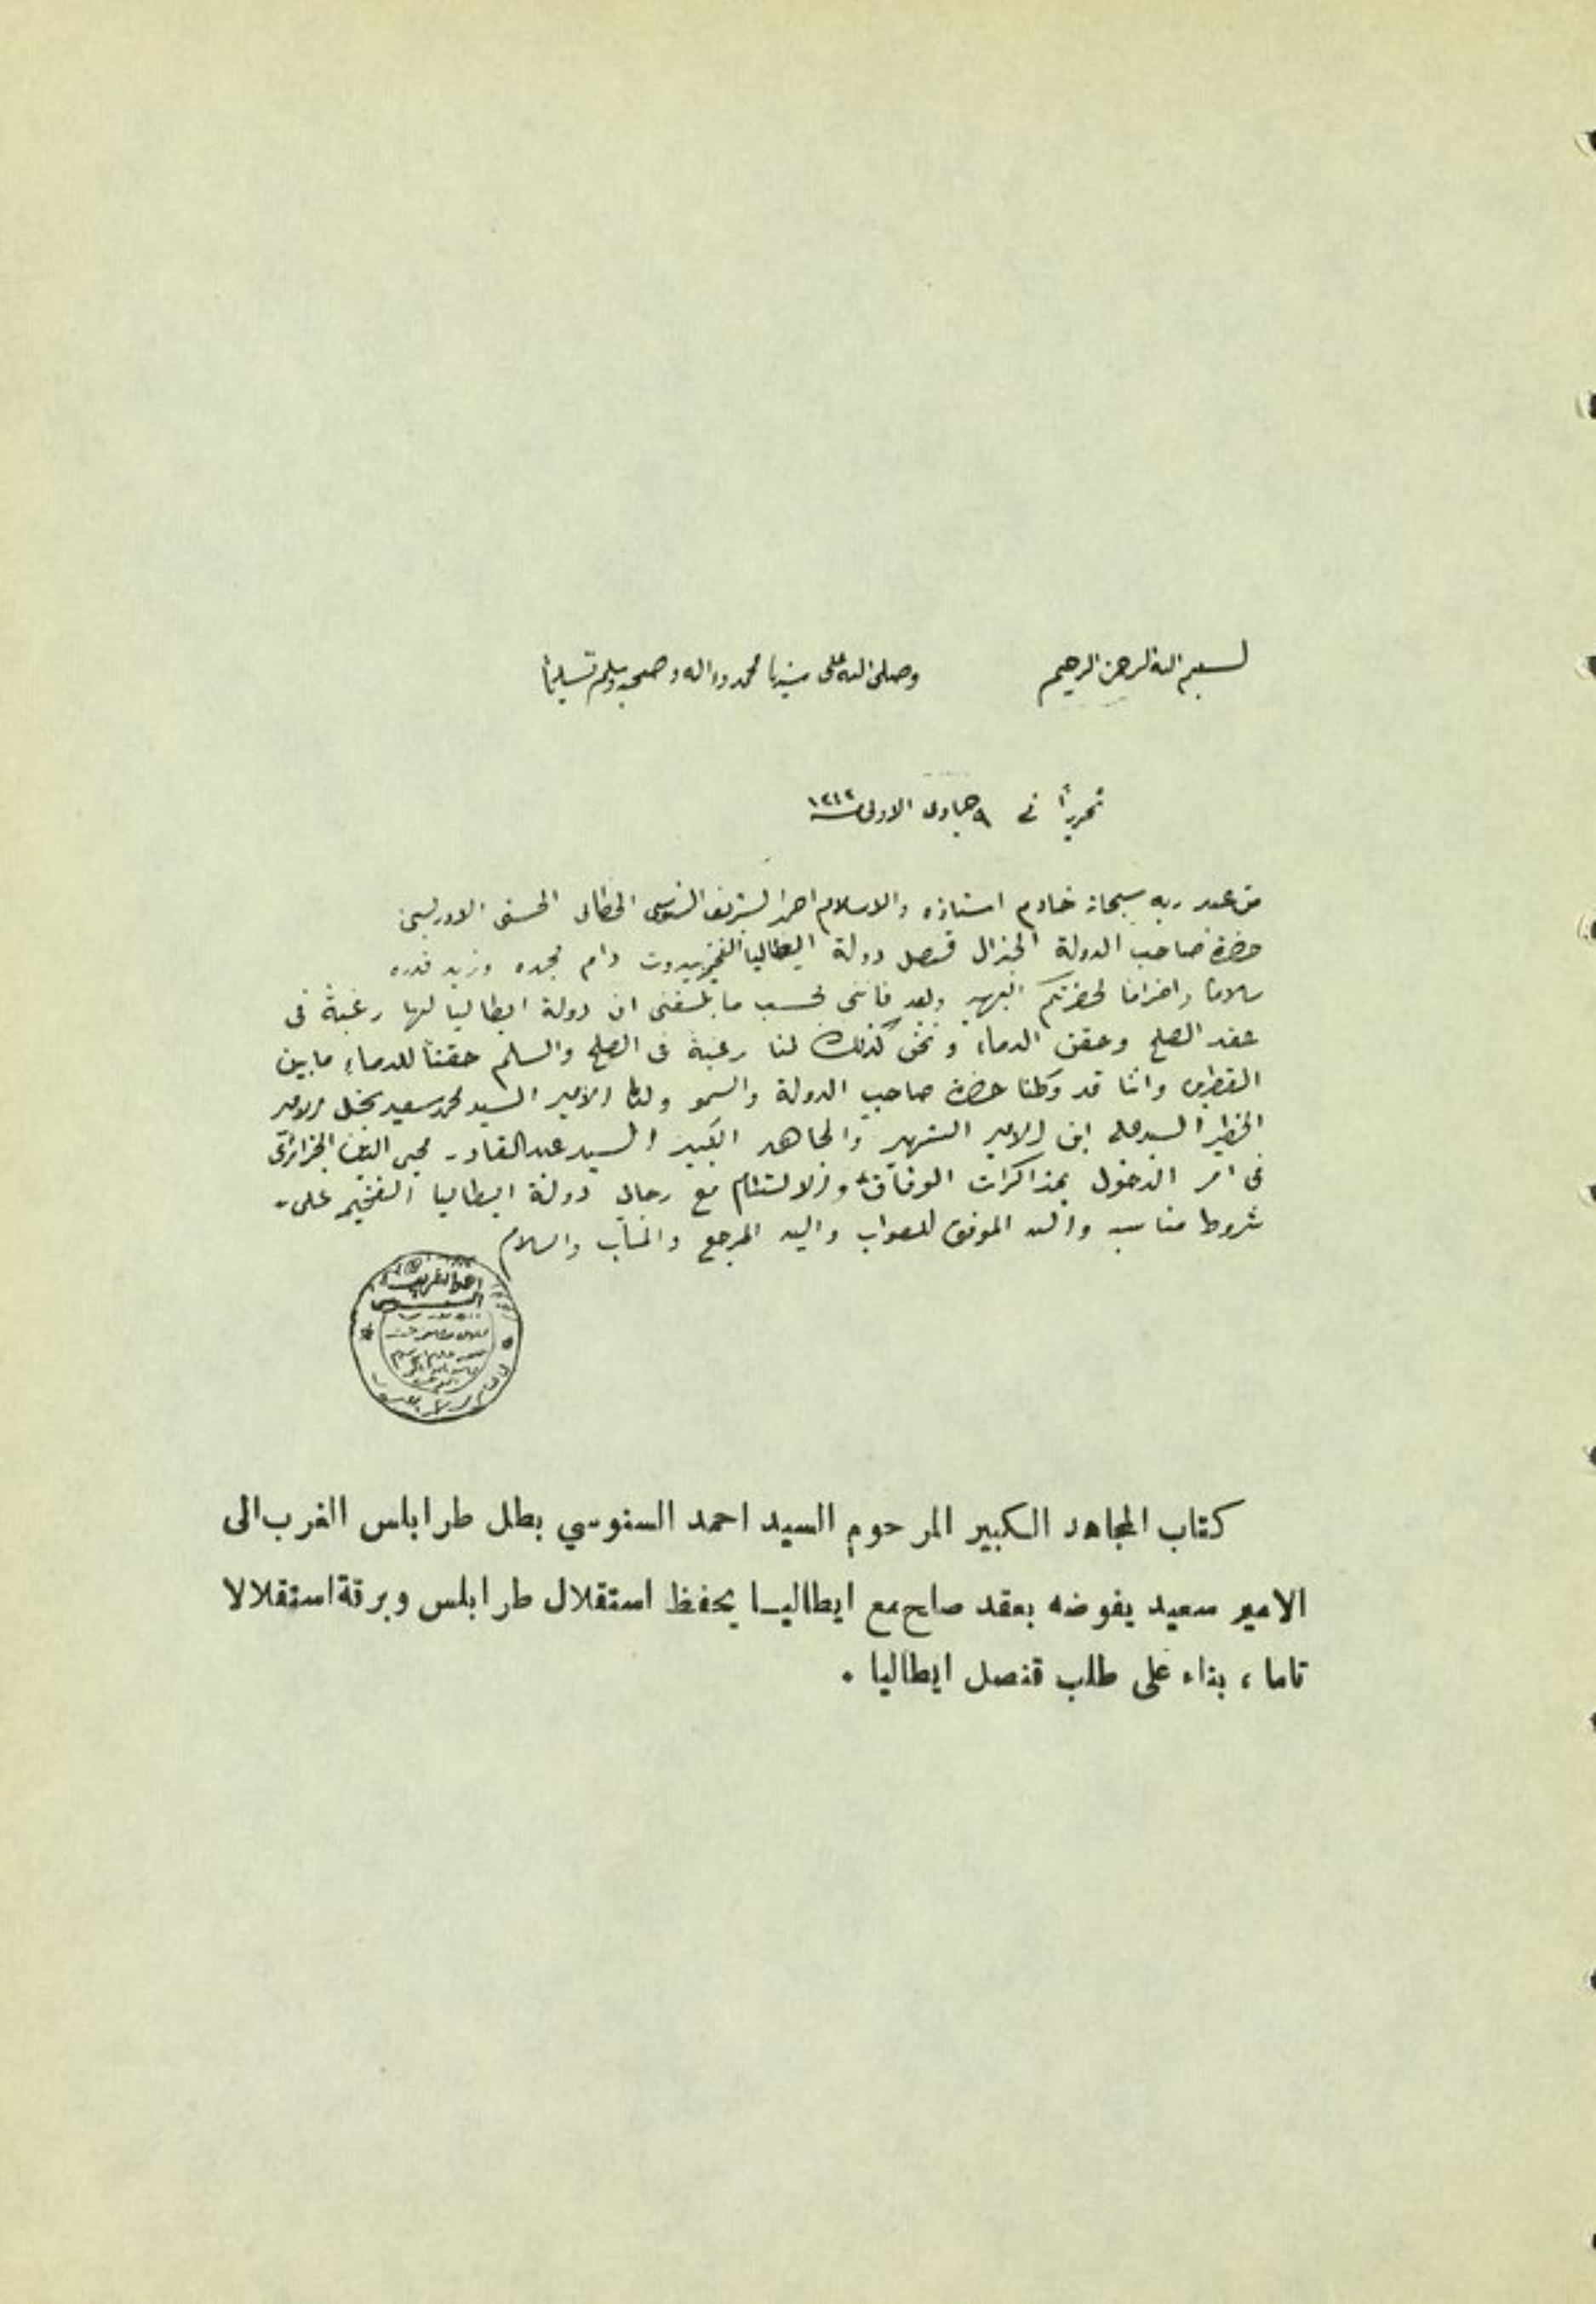 بسم الله الرحمن الرحيم وصلى الله على سيدنا محمد واله وصحبه وسلم تسليماً
تحريراً في ٩ جمادى الاولى سنة
من عبد ربه سبحانه خادم استاذه والاسلام احمد الشريف السنوسى الخطابى الحسنى الادريسى
حضرة صاحب الدولة الجنرال قنصل دولة ايطاليا الفخيمة ببيروت دام مجده وزيد قدره
سلاماً واحتراماً لحضرتكم البهية وبعد فاننى بحسب ما بلغنى ان دولة ايطاليا لها رغبة فى
عقد الصلح وحقن الدماء ونحن كذلك لنا رغبة فى الصلح والسلم حقناً للدماء ما بين
القطرين واننا قد وكلنا حضرة صاحب الدولة والسمو ولدنا الامير السيد محمد سعيد نجل الامير
الخطير السيد على ابن الامير الشهير والمجاهد الكبير السيد عبد القادر محيى الدين الجزائرى
فى امر الدخول بمذاكرات الوفاق والالتئام مع رجال دولة ايطاليا الفخيمة على
شروط مناسبه والله الموفق للصواب واليه المرجع والمئاب والسلام
احمد الشريف
السنوسى
كتاب المجاهد الكبير المرحوم السيد احمد السنوسي بطل طرابلس الغرب الى
الامير سعيد يفوضه بعقد صلح مع ايطاليا يحفظ استقلال طرابلس وبرقة استقلالا
تاما ، بناء على طلب قنصل ايطاليا .